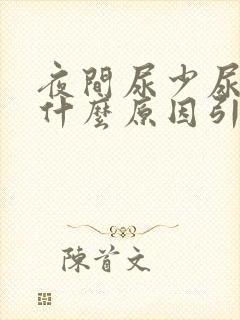 夜間尿少尿
什麼原因引
陳首文